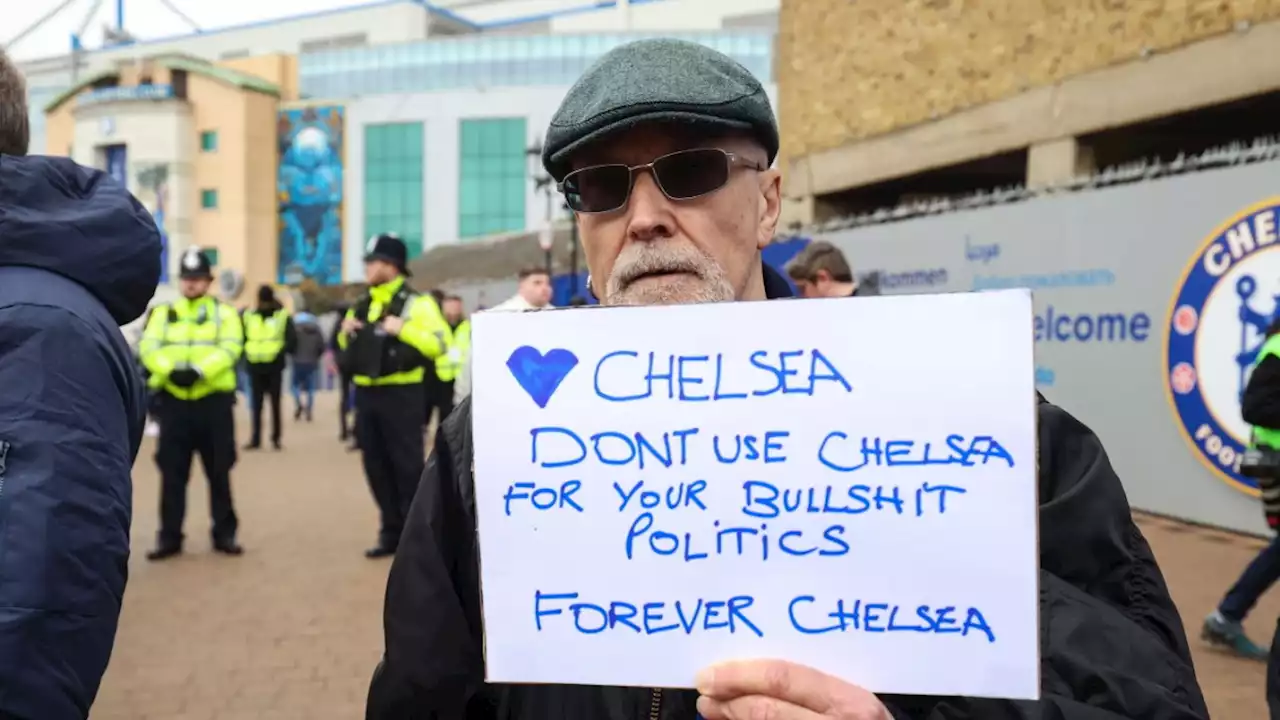 CHELSEA
DONT USE CHELSEA
FOR YOUR BULLSHIT
POLITICS
FOREVER CHELSEA
Welcome
CHELSE
FOOT